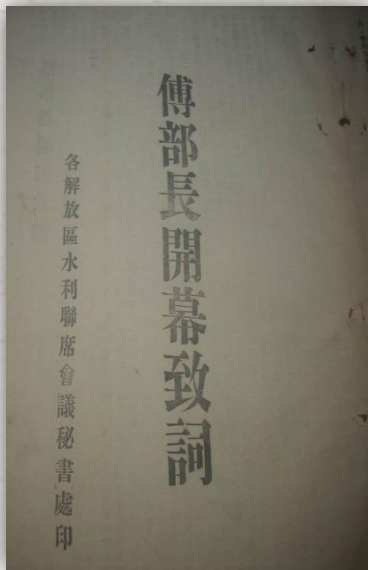 傅部長開幕致詞
各解放區水利聯席會議秘書處印